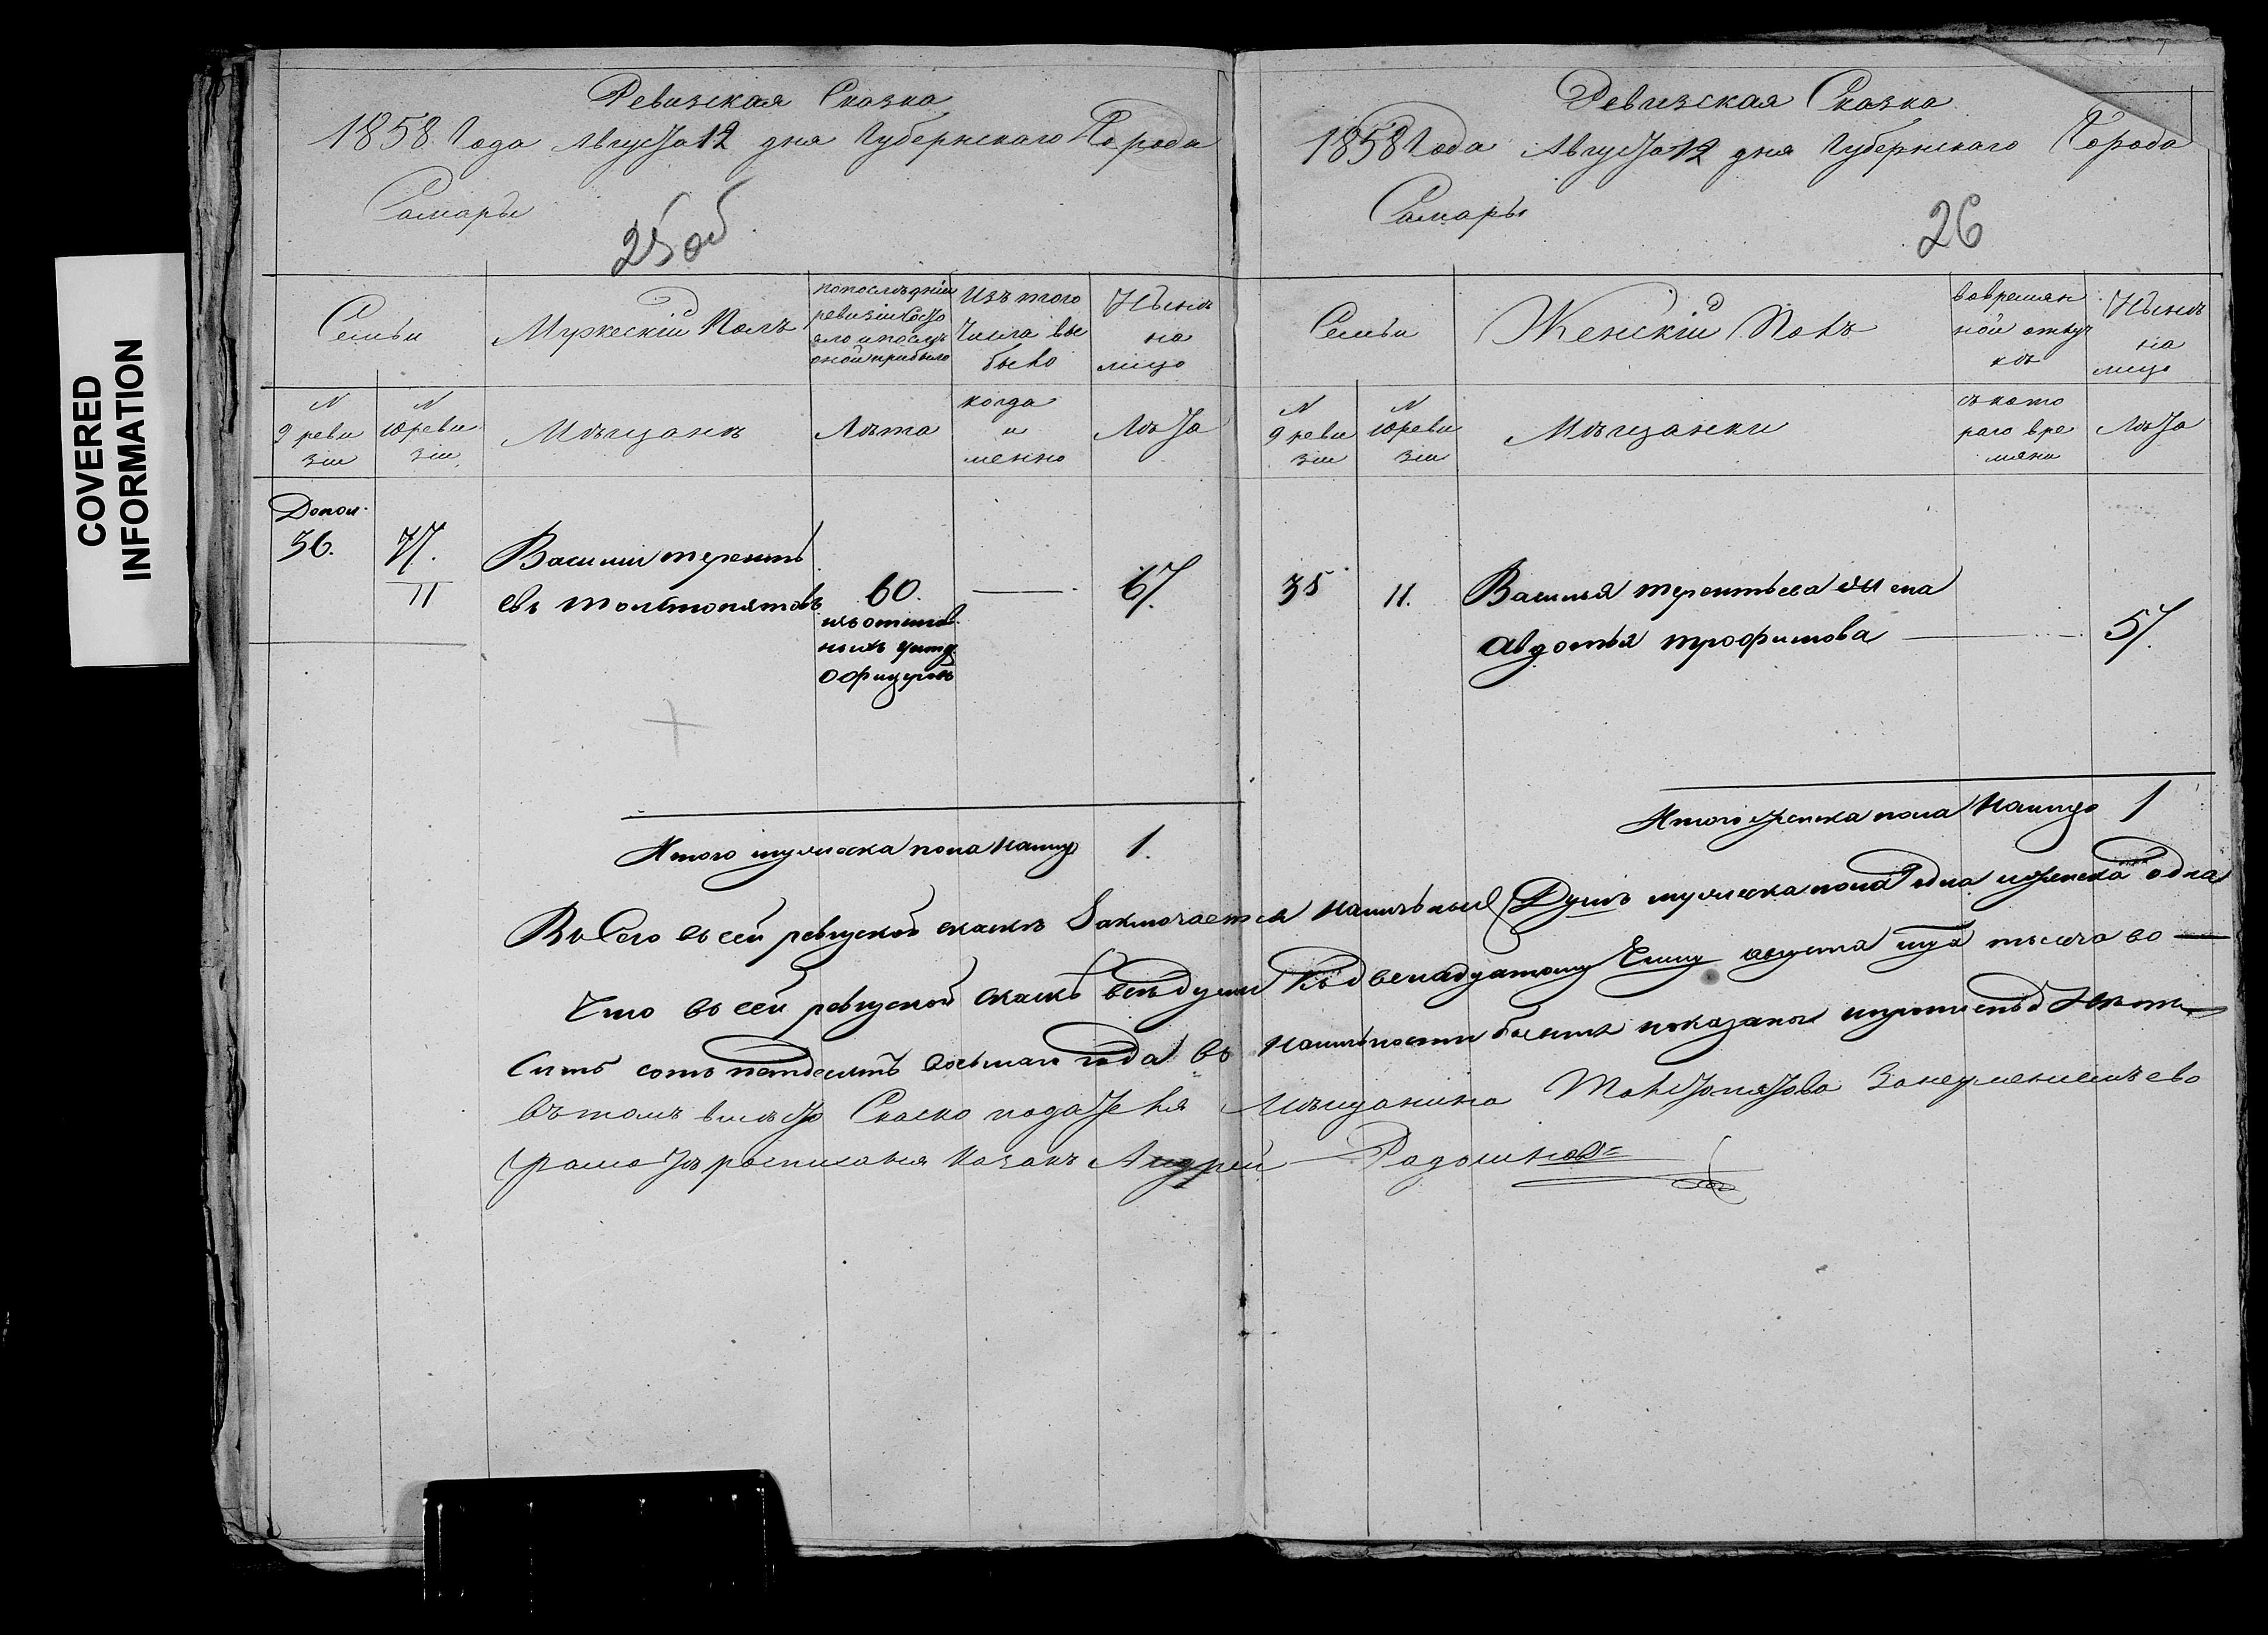 COVERED
INFORMATION
Ревизская Сказка
1858 Года Августа 12 дня Губернскаго Города
Самары
25 об
Семьи
Мужескій Полъ
попоследніи
ревизіи состо
яло и послѣ
оной прибыло
Изъ того
числа вы
было
Нынѣ
на
лицо
N
9 реви
зіи
N
10 реви
зіи
Мѣщанъ
Лѣта
когда
и
менно
Лѣта
Допол.
36.
77.
11
Василии терентъ
евъ толстопятовъ
60.
изъ отстав
ныхъ унтер
офицеровъ
67.
Итого мужеска пола налицо 1.
Ревизская Сказка
1858 Года Августа 12 дня Губернскаго Города
Самары
26
Семьи
Женскій Полъ
вовремян
ной отлуч
кѣ
Нынѣ
на
лицо
N
9 реви
зіи
N
10 реви
зіи
Мѣщанки
съ кото
раго вре
мяни
Лѣта
35
11.
Василья терентьева жена
авдотья трофимова
57.
Итого женска пола Налицо 1
Всего въ сей ревизской скаскѣ Заключается наличныхъ Душъ мужеска пола одна и женска одна
Что въ сей ревизской скаскѣ всѣ души къ двенадцатому Числу августа мца тысеча во
симъ сотъ петдесятъ восьмаго года въ наличности бывшия показаны и прописныхъ Нѣтъ
въ томъ вместо Скаско подателя мѣщанина Толстопятова Занеумениемъ ево
грамотѣ росписался казакъ Андрей